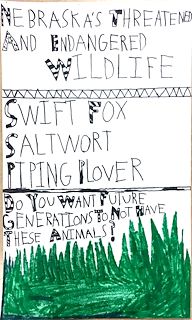 NEBRASKA'S THREATENED
AND ENDANGERED
WILDLIFE
SWIFT FOX
SALTWORT
PIPING PLOVER
DO YOU WANT FUTURE
GENERATIONS TO NOT HAVE
THESE ANIMALS?